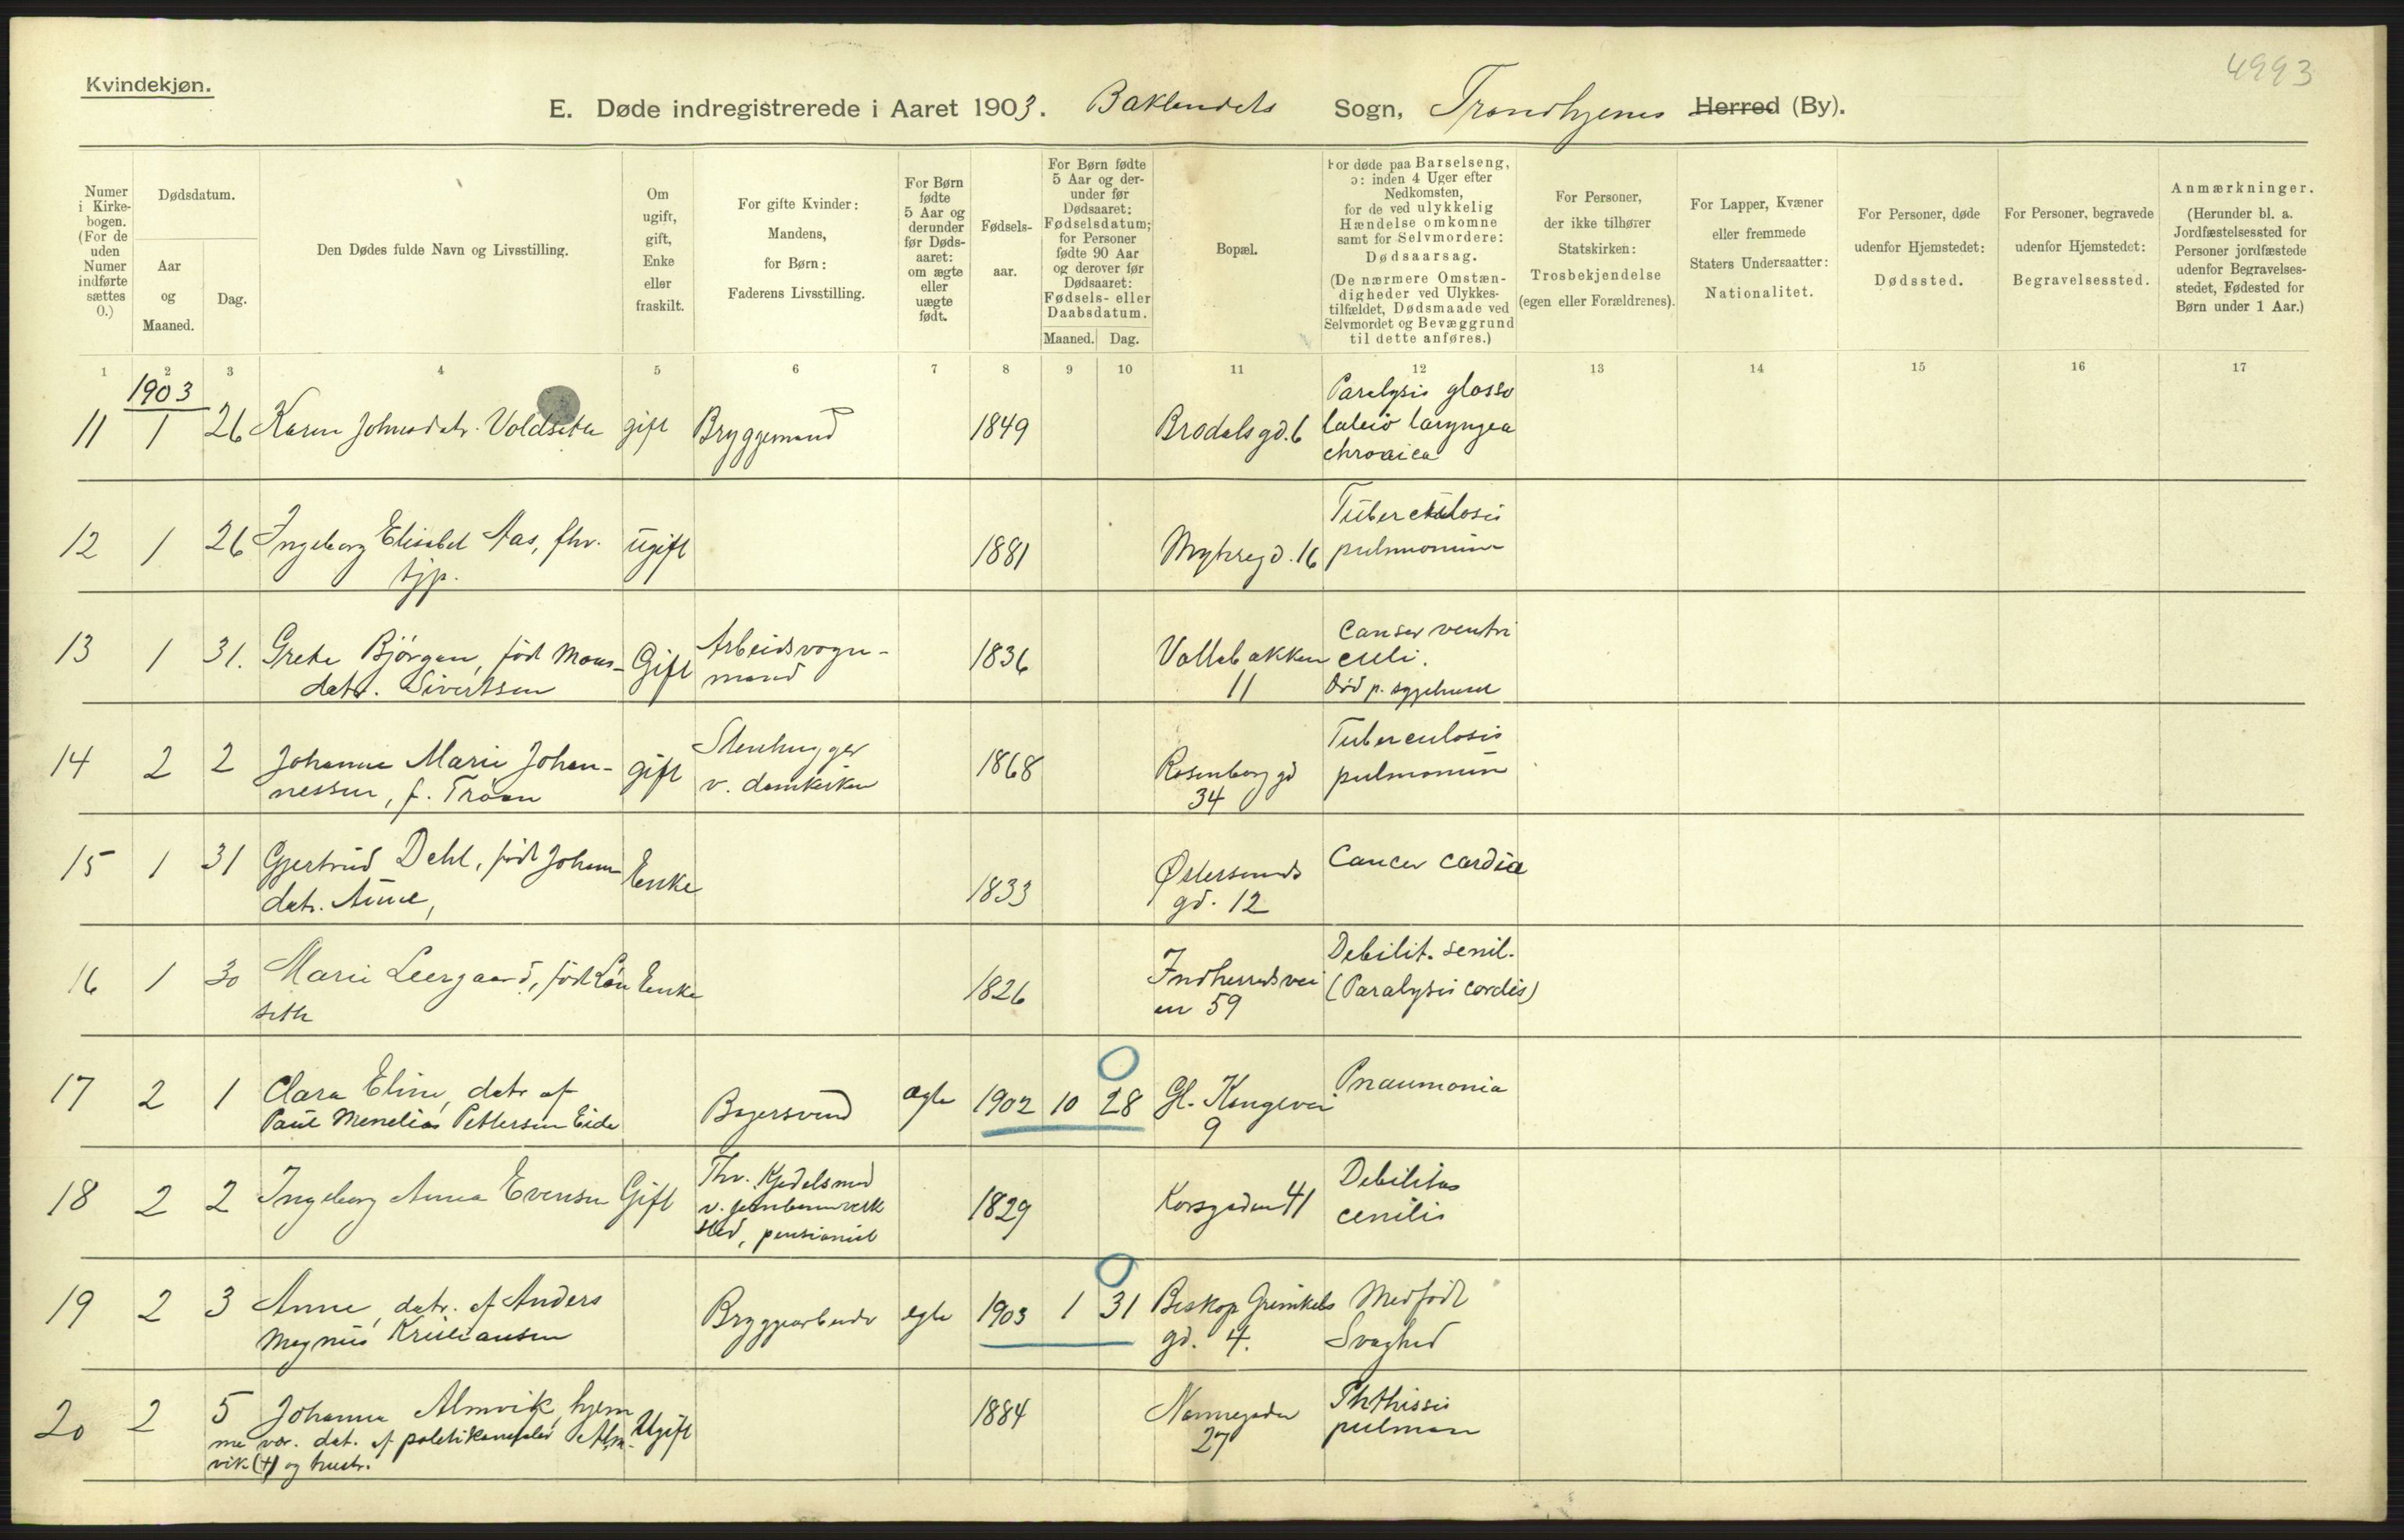 4993
Kvindekjøn.
E. Døde indregistrerede i Aaret 1903. Baklandets Sogn, Trondhjems Herred (By).
Numer i Kirkebogen. (For de uden Numer indførte sættes 0.)
Dødsdatum.
Aar og Maaned.
Dag.
Den Dødes fulde Navn og Livsstilling.
Om ugift, gift, Enke eller fraskilt.
For gifte Kvinder: Mandens, for Børn: Faderens Livsstilling.
For Børn fødte 5 Aar og derunder før Dødsaaret: om ægte eller uægte født.
Fødselsaar.
For Børn fødte 5 Aar og derunder før Dødsaaret: Fødselsdatum; for Personer fødte 90 Aar og derover før Dødsaaret: Fødsels- eller Daabsdatum.
Maaned. Dag.
Bopæl.
For døde paa Barselseng, ɔ: inden 4 Uger efter Nedkomsten, for de ved ulykkelig Hændelse omkomne samt for Selvmordere: Dødsaarsag. (De nærmere Omstændigheder ved Ulykkestilfældet, Dødsmaade ved Selvmordet og Bevæggrund til dette anføres.)
For Personer, der ikke tilhører Statskirken: Trosbekjendelse (egen eller Forældrenes).
For Lapper, Kvæner eller fremmede Staters Undersaatter: Nationalitet.
For Personer, døde udenfor Hjemstedet: Dødssted.
For Personer, begravede udenfor Hjemstedet: Begravelsessted.
Anmærkninger. (Herunder bl. a. Jordfæstelsessted for Personer jordfæstede udenfor Begravelsesstedet, Fødested for Børn under 1 Aar.)
1 2 3 4 5 6 7 8 9 10 11 12 13 14 15 16 17
1903
11 1 26 Karen Johnsdatr. Voldseter gift Bryggemand 1849 Brodals gd. 6 Paralysis glosso
labio laryngea
chronica
12 1 26 Ingeborg Elisabet Aas, fhv. ugift 1881 16 Tuberculosis
tjp. pulmonum
13 1 31. Grete Bjørgan, født Mons- Gift Arbeidsvogn- 1836 Vollabakken Canser ventri
datr. Sivertsen mand 11 culi.
Død p. sygehuset
14 2 2 Johanna Marie Johan- gift Stenhugger 1868 Rosenborg gd Tuberculosis
nessen, f. Trøan v. domkirken 34 pulmonum
15 1 31 Gjertrud Dehl, født Johan Enke 1833 Østersunds Cancer cardiæ
datr. Aune, gd. 12
16 1 30 Marie Leergaard, født Løn Enke 1826 Indherredsvei Debilit. senil.
seth en 59 (Paralysis cordis)
17 2 1 Clara Eline, datr af Bagersvend ægte 1902 10 28 Gl. Kongevei Pnaumonia
Paul Menelias Pettersen Eide 9
18 2 2 Ingeborg Anna Evensen Gift Fhv. Kjedelsmed 1829 Korsgaden 41 Debilitas
v. jernbaneverk cenilis
sted, pensionist
19 2 3 Anne, datr. af Anders Bryggearbeider ægte 1903 1 31 Biskop Grimkels Medfødt
Magnus Kristiansen gd. 4. Svaghed
20 2 5 Johanna Almvik, hjem Ugift 1884 Nonnegaden Phthissis
me vær. dat. af politikonstabel Alm- 27 pulmon
vik (+) og hustr.